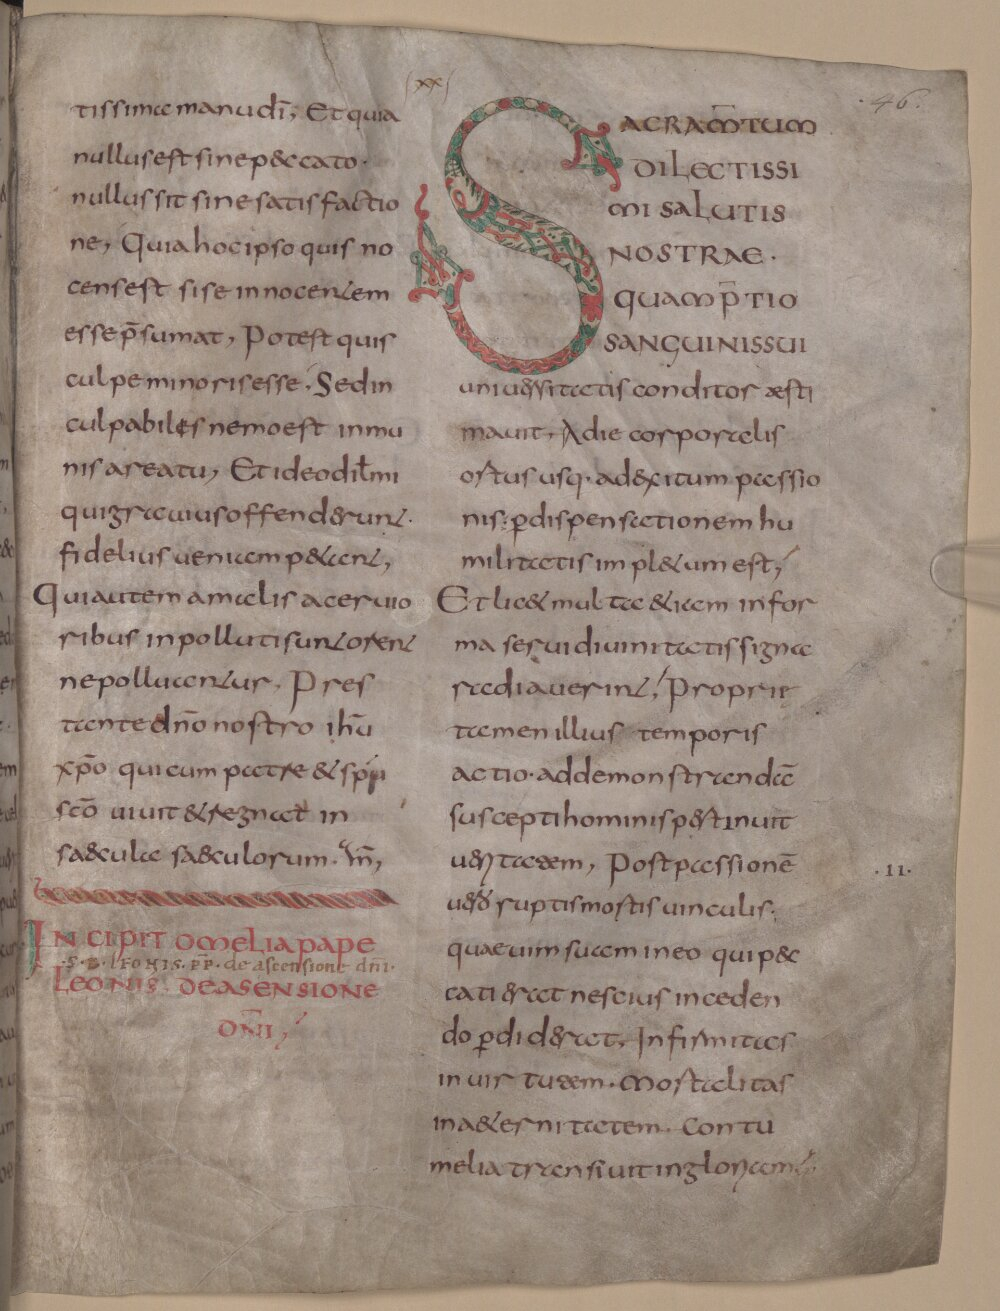 (xx)
46.
tissimae manu dī, Et quia
nullus est sine peccato·
nullus sit sine satisfactio
ne, Quia hoc ipso quis no
cens est si se innocentem
esse p̄sumat, Potest quis
culpe minoris esse. Sed in
culpabiles nemo est inmu
nis a reatu, Et ideo dil̄mi
qui gravius offenderunt·
fidelius veniam petant,
Qui autem a malis acervio
ribus inpolluti sunt orent
ne polluantur. Pres
tante dn̄o nostro ihū
xp̄o qui cum patre & spū
scō vivit & regnat in
saecula saeculorum. am̄,
INCIPIT OMELIA PAPE
·S·B·LEONIS·P̄P·de ascensione dn̄i·
LEONIS DE ASENSIONE
DN̄I,
SACRAM̄TUM
DILECTISSI
MI SALUTIS
NOSTRAE·
QUAM P̄TIO
SANGUINIS SUI
universitatis conditor aesti
mavit, A die corporalis
ortus usq· ad exitum passio
nis· ꝑ dispensationem hu
militatis impletum est,
Et licet multa etiam in for
ma servi divinitatis signa
radiaverint, Proprie
tamen illius temporis
actio· ad demonstrandā
suscepti hominis pertinuit
veritatem, Post passionē
·II·
vero ruptis mortis vinculis·
quae vim suam in eo qui pec
cati erat nescius inceden
do ꝑdiderat, Infirmitas
in virtutem· Mortalitas
in aeternitatem· Contu
melia transivit in gloriam,